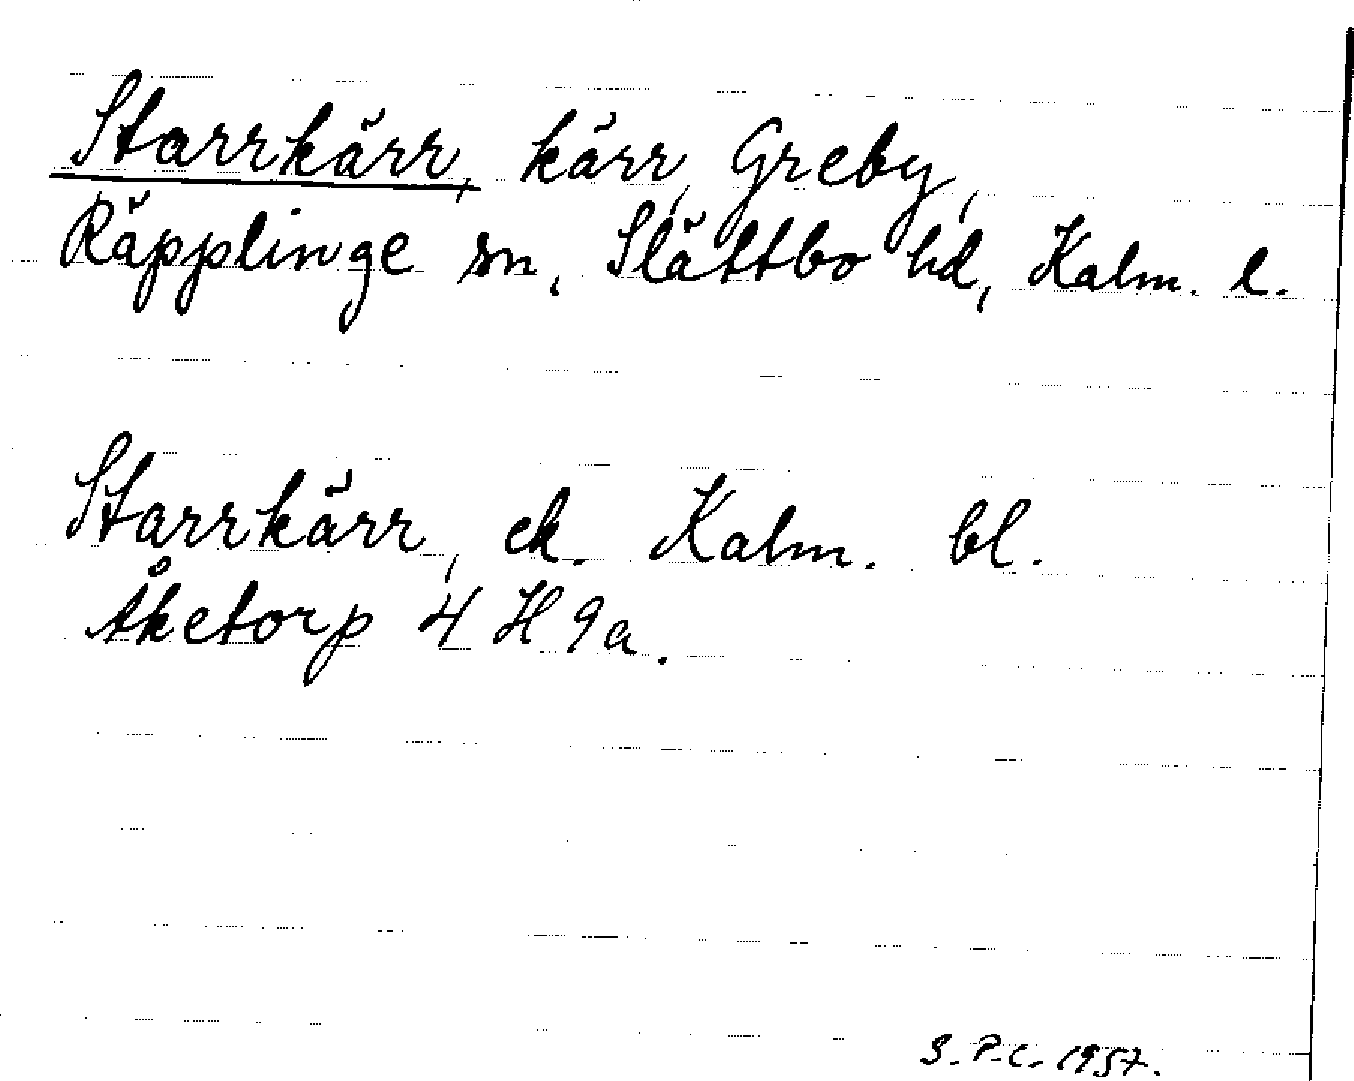 Starrkärr, kärr, Greby,
Räpplinge sn, Slättbo hd, Kalm. l.
Starrkärr, ek. Kalm. bl.
Åketorp 4 H 9a.
S.P.C. 1957.